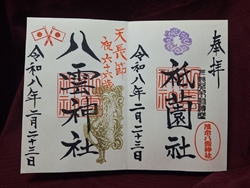 奉拝
祇園社
令和八年二月二十三日
天長節
祝六十六歳
八雲神社
令和八年二月二十三日